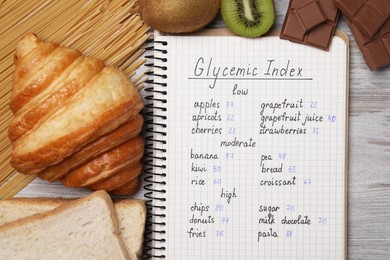 Glycemic Index
low
apples grapefruit 22
apricots 22 grapefruit juice
cherries 22 strawberries 32
moderate
banana pea
kiwi 50 bread
rice 60 croissant 67
high
chips 80 sugar 70
donuts 76 milk chocolate 70
fries pasta